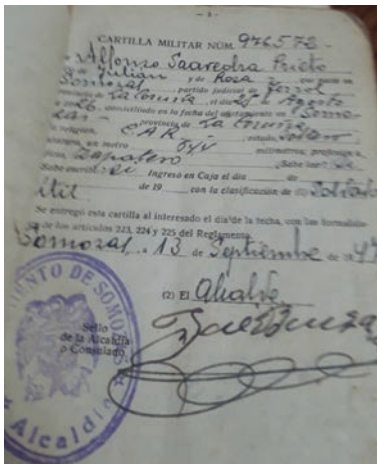 - 3 -
CARTILLA MILITAR NÚM. 976572-
Alfonso Saavedra Prieto
de Julian y de Rosa que nació en
Somozas, partido judicial de Ferrol
provincia de La Coruña, el día 25 de Agosto
de 1926, domiciliado en la fecha del alistamiento en Somo-
zas- provincia de La Coruña
religión, C A R estado, Soltero
un metro 544 milímetros; profesión u
oficio, Zapatero ¿Sabe leer? Si
¿Sabe escribir? Si Ingresó en Caja el día de
de 19 con la clasificación de (1) Soldado
útil
Se entregó esta cartilla al interesado el día de la fecha, con las formalida-
de los artículos 223, 224 y 225 del Reglamento.
Somozas, a 13 de Septiembre de 1947
(2) El Alcalde
Sello
de la Alcaldía
o Consulado
AYUNTAMIENTO DE SOMOZAS
Alcaldía